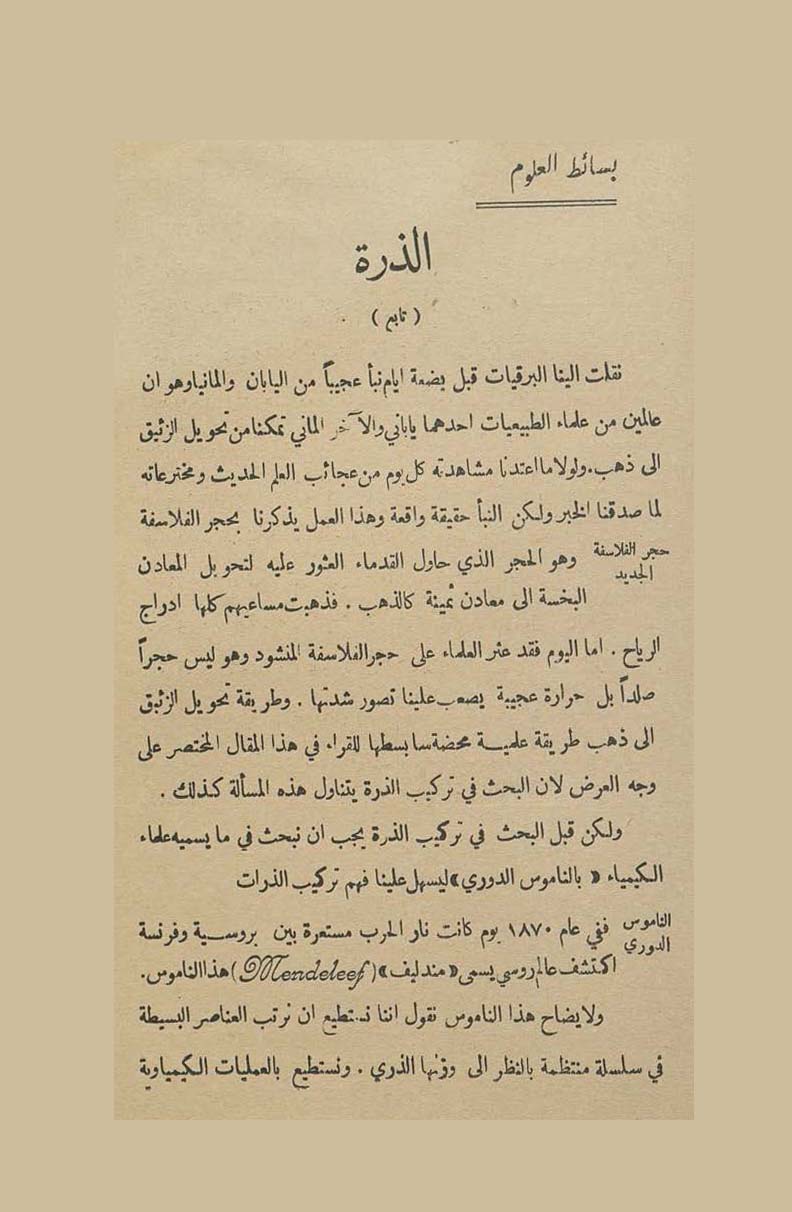 بسائط العلوم
الذرة
( تابع )
نقلت الينا البرقيات قبل بضعة ايام نبأ عجيباً من اليابان والمانيا وهو ان
عالمين من علماء الطبيعيات احدهما ياباني والآخر الماني تمكنا من تحويل الزئبق
الى ذهب . ولولا ما اعتدنا مشاهدته كل يوم من عجائب العلم الحديث ومخترعاته
لما صدقنا الخبر ولكن النبأ حقيقة واقعة وهذا العمل يذكرنا بحجر الفلاسفة
حجر الفلاسفة
الجديد
وهو الحجر الذي حاول القدماء العثور عليه لتحويل المعادن
البخسة الى معادن ثمينة كالذهب . فذهبت مساعيهم كلها ادراج
الرياح . اما اليوم فقد عثر العلماء على حجر الفلاسفة المنشود وهو ليس حجراً
صلداً بل حرارة عجيبة يصعب علينا تصور شدتها . وطريقة تحويل الزئبق
الى ذهب طريقة علمية محضة سابسطها للقراء في هذا المقال المختصر على
وجه العرض لان البحث في تركيب الذرة يتناول هذه المسألة كذلك .
ولكن قبل البحث في تركيب الذرة يجب ان نبحث في ما يسميه علماء
الكيمياء « بالناموس الدوري » ليسهل علينا فهم تركيب الذرات
الناموس
الدوري
ففي عام ١٨٧٠ يوم كانت نار الحرب مستعرة بين بروسية وفرنسة
اكتشف عالم روسي يسمى « مندليف » ( Mendeleef ) هذا الناموس .
ولايضاح هذا الناموس نقول اننا نستطيع ان نرتب العناصر البسيطة
في سلسلة منتظمة بالنظر الى وزنها الذري . ونستطيع بالعمليات الكيمياوية